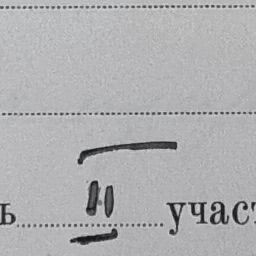 ь II участ